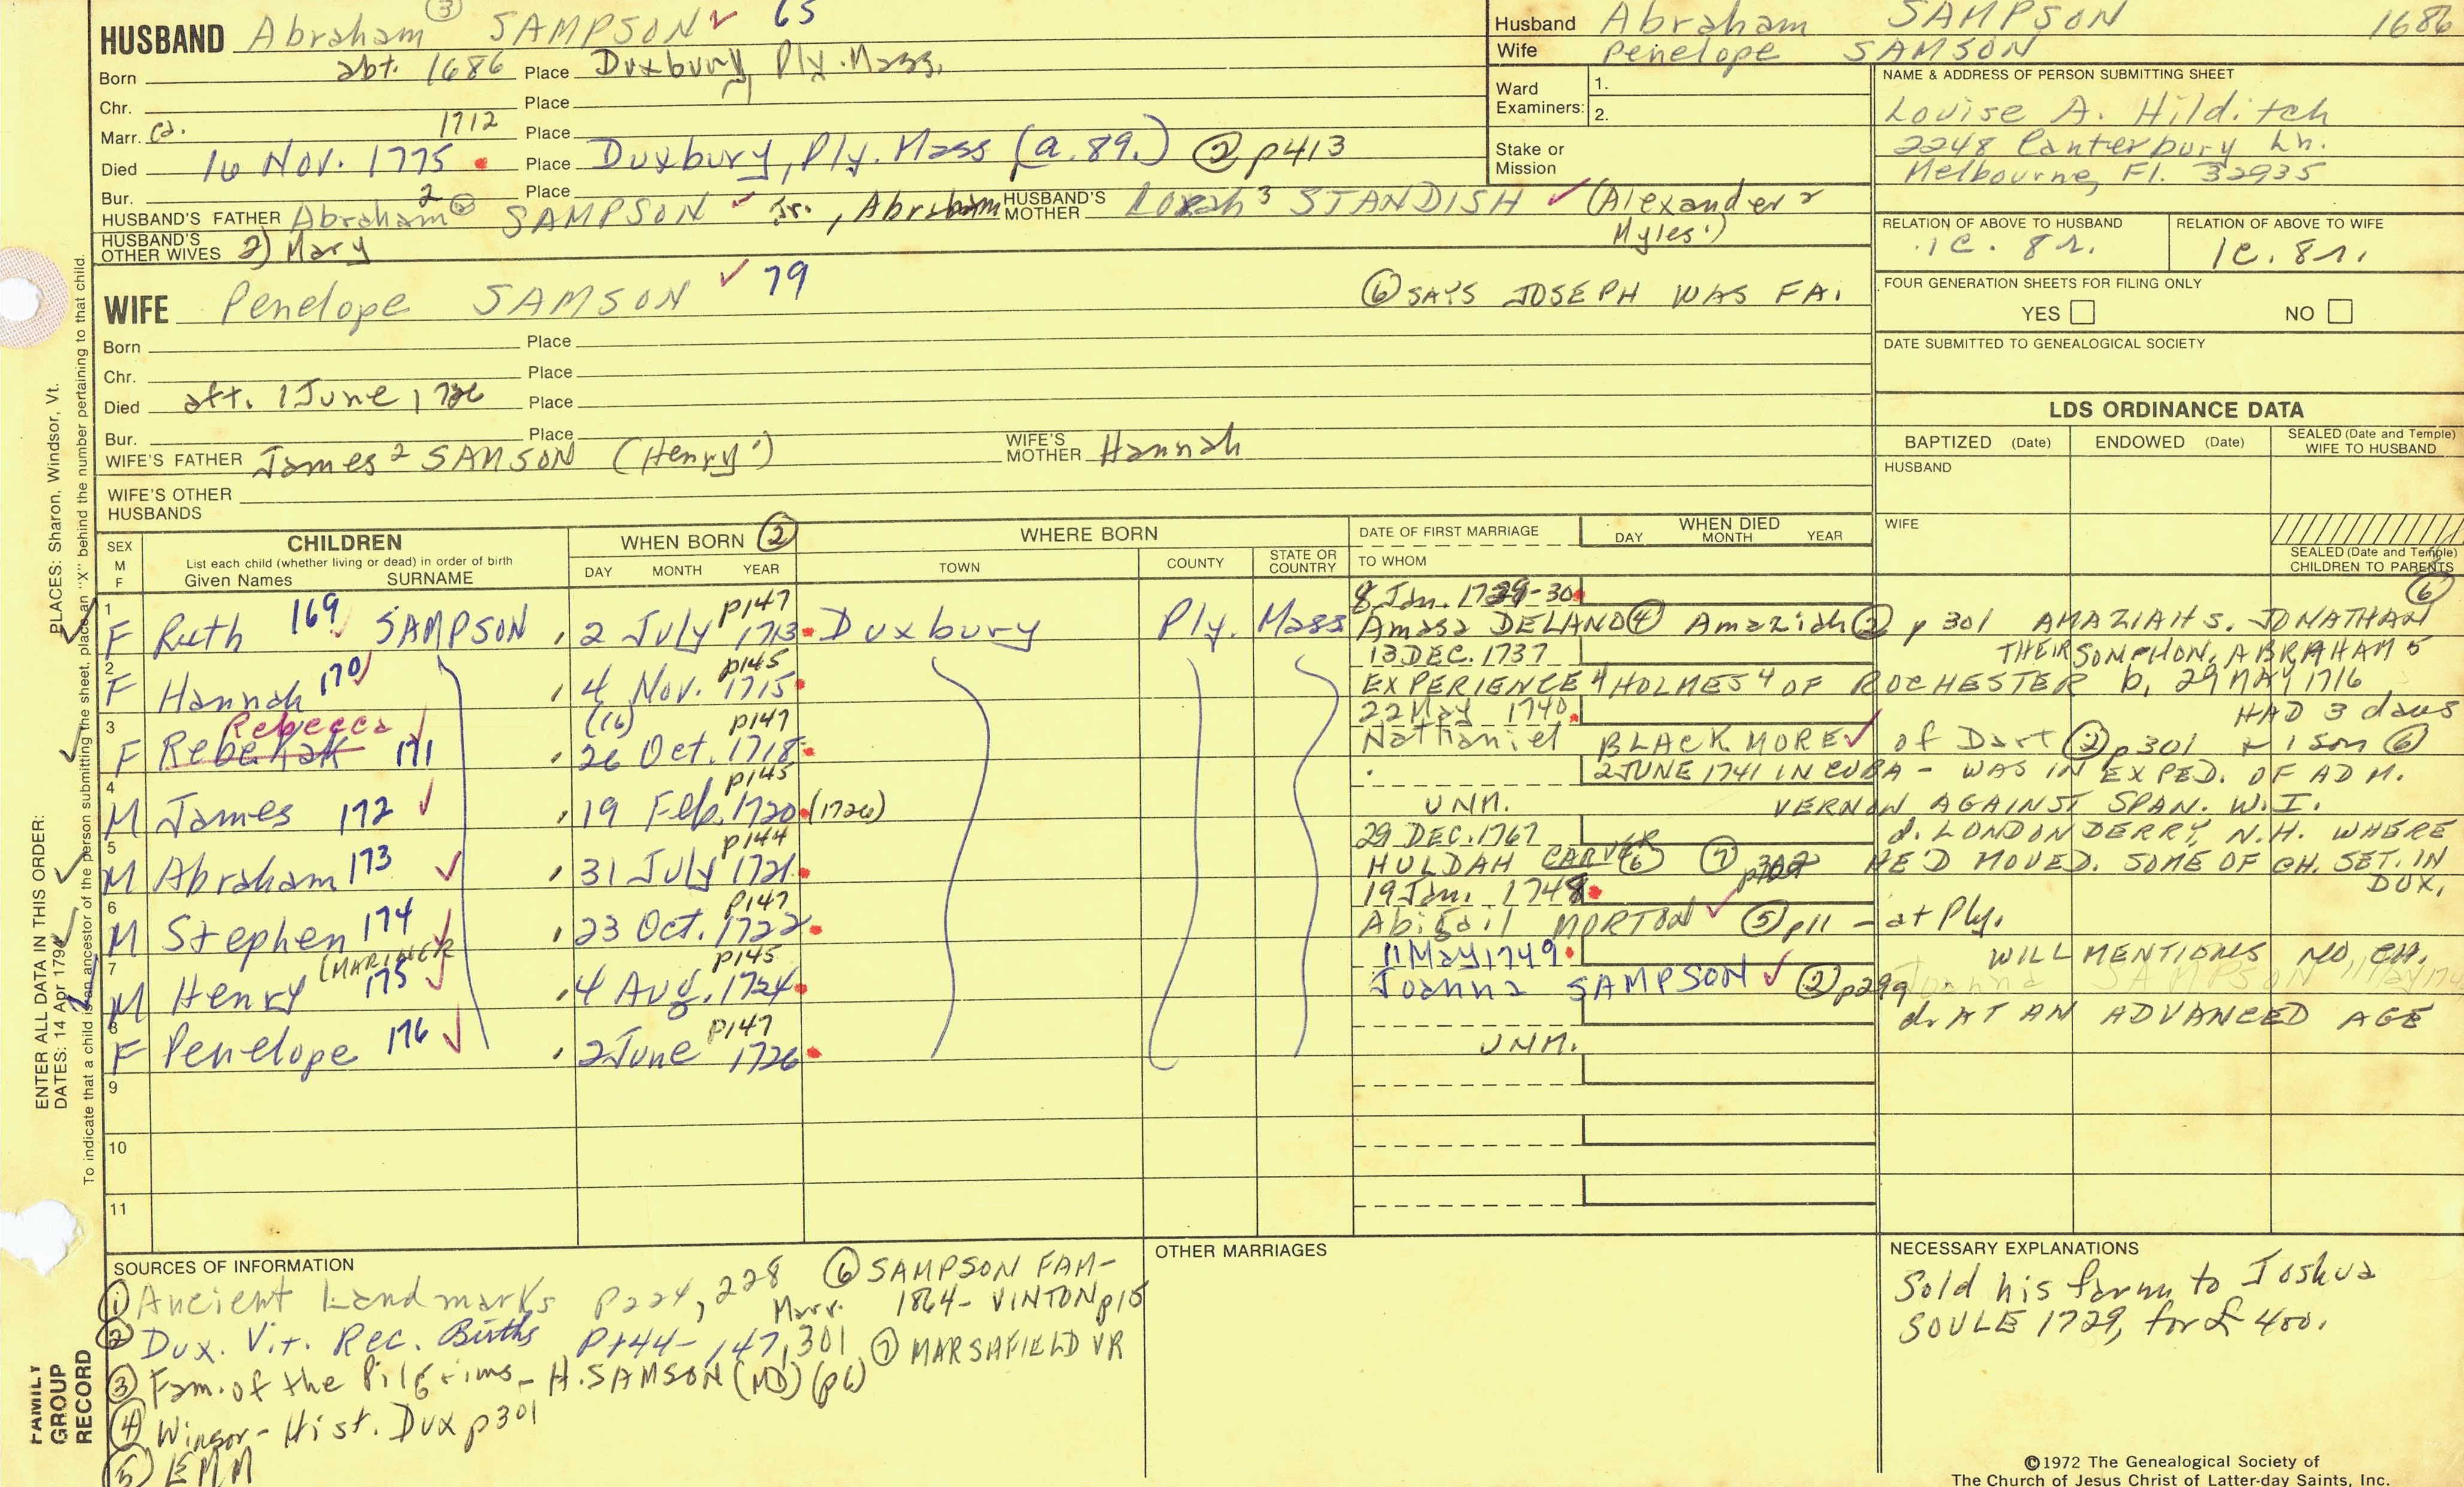 HUSBAND Abraham ③ SAMPSON ✓ 65
Born abt. 1686 Place Duxbury, Ply. Mass.
Chr. Place
Marr. ca. 1712 Place
Died 16 Nov. 1775 Place Duxbury, Ply. Mass (a. 89.) ② p413
Bur. Place
HUSBAND'S FATHER Abraham 2 SAMPSON ✓ Jr., Abraham HUSBAND'S MOTHER Lorah 3 STANDISH ✓ (Alexander 2
Myles 1)
HUSBAND'S OTHER WIVES 2) Mary
Husband Abraham SAMPSON 1686
Wife Penelope SAMSON
Ward Examiners: 1.
2.
Stake or Mission
NAME & ADDRESS OF PERSON SUBMITTING SHEET
Louise A. Hilditch
2248 Canterbury Ln.
Melbourne, Fl. 32935
RELATION OF ABOVE TO HUSBAND RELATION OF ABOVE TO WIFE
1C. 8r. 1C. 8r.
FOUR GENERATION SHEETS FOR FILING ONLY
YES NO
DATE SUBMITTED TO GENEALOGICAL SOCIETY
WIFE Penelope SAMSON ✓ 79
⑥ SAYS JOSEPH WAS FA.
Born Place
Chr. Place
Died aft. 1 June 1726 Place
Bur. Place
WIFE'S FATHER James 2 SAMSON (Henry 1) WIFE'S MOTHER Hannah
WIFE'S OTHER HUSBANDS
LDS ORDINANCE DATA
BAPTIZED (Date) ENDOWED (Date) SEALED (Date and Temple) WIFE TO HUSBAND
HUSBAND
WIFE
SEALED (Date and Temple) CHILDREN TO PARENTS
SEX M F
CHILDREN
List each child (whether living or dead) in order of birth
Given Names SURNAME
WHEN BORN ②
DAY MONTH YEAR
WHERE BORN
TOWN COUNTY STATE OR COUNTRY
DATE OF FIRST MARRIAGE
TO WHOM
WHEN DIED
DAY MONTH YEAR
1 F Ruth 169 SAMPSON 2 July 1713 p147 Duxbury Ply. Mass
8 Jan. 1729-30
Amasa DELANO ④ Amaziah ② p 301 AMAZIAH S. JONATHAN ⑥
THEIR SON PHON, ABRAHAM 5
2 F Hannah 170 4 Nov. 1715 p145
13 DEC. 1737
EXPERIENCE 4 HOLMES 4 OF ROCHESTER b. 29 MAY 1716
HAD 3 daus
3 F Rebekah Rebecca 171 26 Oct. 1718 (16) p147
22 May 1740
Nathaniel BLACKMORE ✓ of Dart ② p301 + 1 son ⑥
4 M James 172 19 Feb. 1720 (1726) p145
2 JUNE 1741 IN CUBA - WAS IN EXPED. OF ADM.
UNM. VERNON AGAINST SPAN. W.I.
5 M Abraham 173 31 July 1721 p144
29 DEC. 1767 d. LONDONDERRY, N.H. WHERE
HULDAH CARVER ⑥ ⑦ HE'D MOVED. SOME OF CH. SET. IN
DUX.
6 M Stephen 174 23 Oct. 1722 p147
19 Jan. 1748
Abigail MORTON ✓ ⑤ p11 - at Ply.
7 M Henry (MARINER 175 4 Aug. 1724 p145
11 May 1749 WILL MENTIONS NO CH.
Joanna SAMPSON ✓ ② p299 Joanna SAMPSON
8 F Penelope 176 2 June 1726 p147
UNM. d. AT AN ADVANCED AGE
9
10
11
SOURCES OF INFORMATION
① Ancient Landmarks p224, 228
② Dux. Vit. Rec. Births p144-147, Marr. 301
③ Fam. of the Pilgrims - H. SAMSON (MD) (p6)
④ Winsor - Hist. Dux p301
⑤ EMM
⑥ SAMPSON FAM-
1864 - VINTON p15
⑦ MARSHFIELD VR
OTHER MARRIAGES
NECESSARY EXPLANATIONS
Sold his farm to Joshua
SOULE 1729, for £ 400.
©1972 The Genealogical Society of
The Church of Jesus Christ of Latter-day Saints, Inc.
ENTER ALL DATA IN THIS ORDER:
DATES: 14 Apr 1794
PLACES: Sharon, Windsor, Vt.
To indicate that a child is an ancestor of the person submitting the sheet, place an "X" behind the number pertaining to that child.
FAMILY
GROUP
RECORD